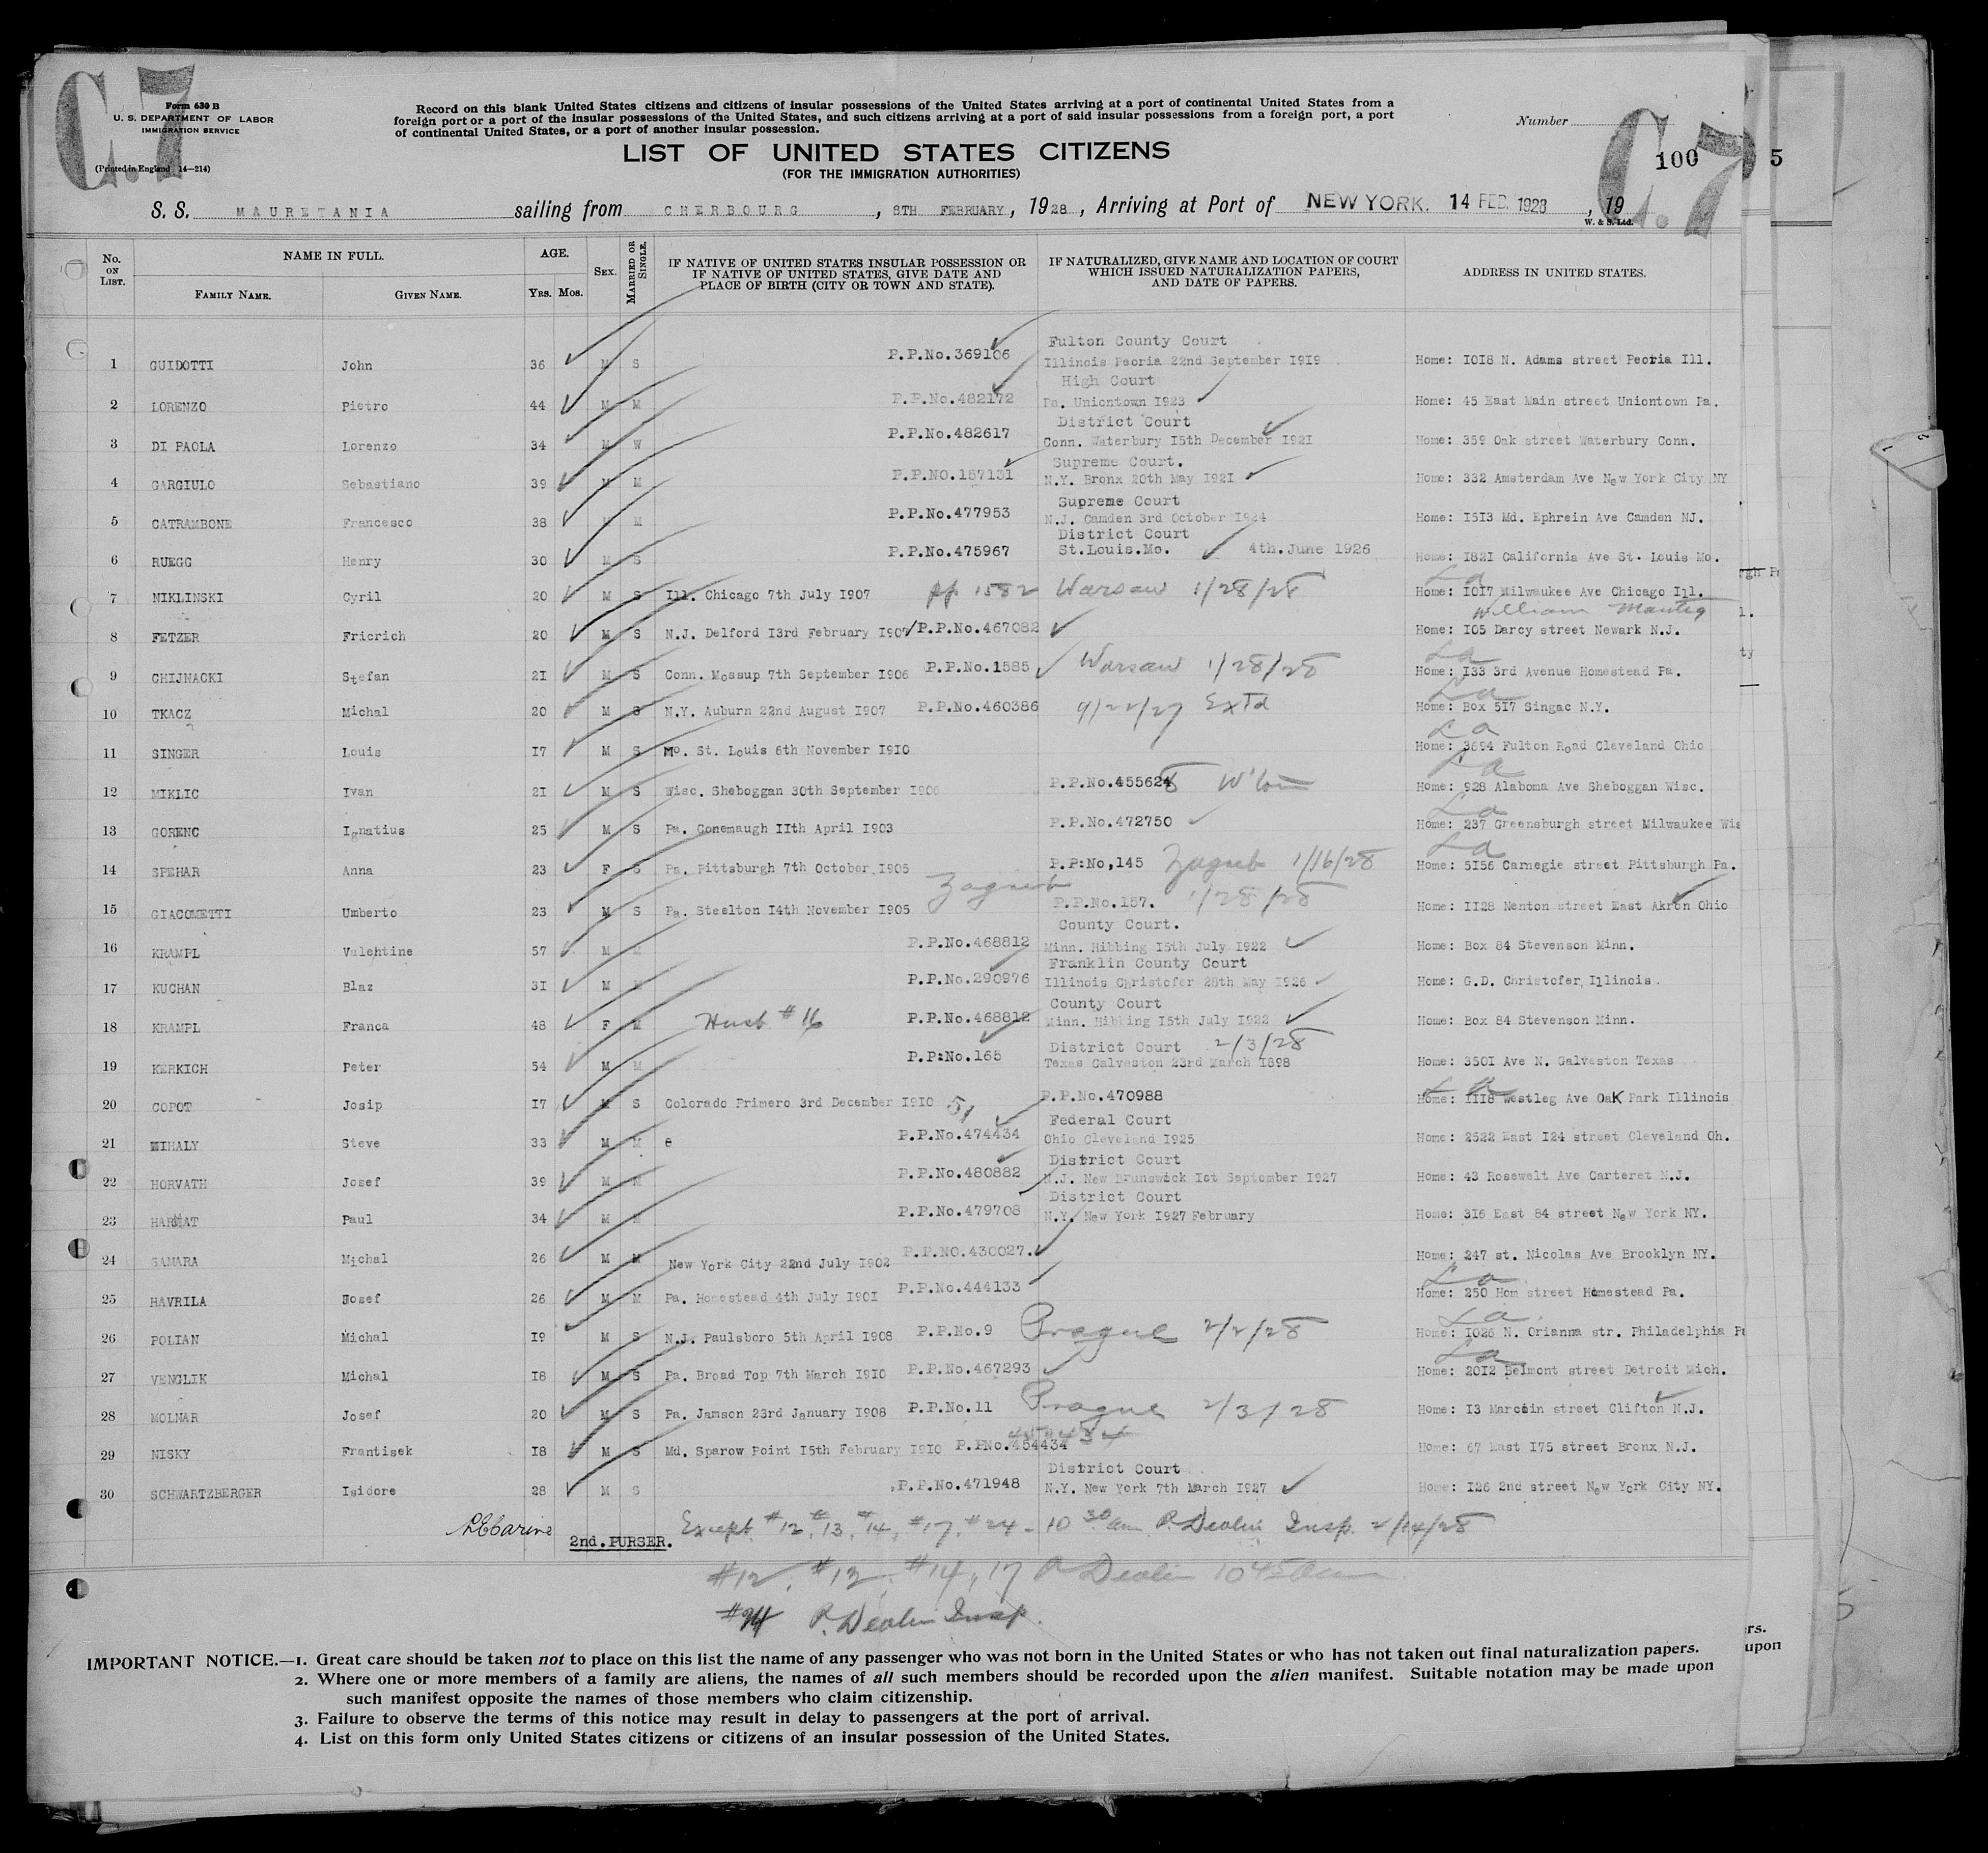 C.7
Form 630 B
U. S. DEPARTMENT OF LABOR
IMMIGRATION SERVICE
(Printed in England 14—214)
Record on this blank United States citizens and citizens of insular possessions of the United States arriving at a port of continental United States from a
foreign port or a port of the insular possessions of the United States, and such citizens arriving at a port of said insular possessions from a foreign port, a port
of continental United States, or a port of another insular possession.
Number
C.7
100
5
LIST OF UNITED STATES CITIZENS
(FOR THE IMMIGRATION AUTHORITIES)
S. S. MAURETANIA sailing from CHERBOURG, 8TH FEBRUARY, 1928, Arriving at Port of NEW YORK. 14 FEB 1928, 19
W. & S. Ltd.
No. ON LIST. NAME IN FULL. FAMILY NAME. GIVEN NAME. AGE. YRS. MOS. SEX. MARRIED OR SINGLE. IF NATIVE OF UNITED STATES INSULAR POSSESSION OR IF NATIVE OF UNITED STATES, GIVE DATE AND PLACE OF BIRTH (CITY OR TOWN AND STATE). IF NATURALIZED, GIVE NAME AND LOCATION OF COURT WHICH ISSUED NATURALIZATION PAPERS, AND DATE OF PAPERS. ADDRESS IN UNITED STATES.
Fulton County Court
1 GUIDOTTI John 36 M S P.P.No.369106 Illinois Peoria 22nd September I9I9 Home: IOI8 N. Adams street Peoria Ill.
High Court
2 LORENZO Pietro 44 M M P.P.No.482172 Pa. Uniontown I923 Home: 45 East Main street Uniontown Pa.
District Court
3 DI PAOLA Lorenzo 34 M W P.P.No.482617 Conn. Waterbury I5th December I92I Home: 359 Oak street Waterbury Conn.
Supreme Court.
4 GARGIULO Sebastiano 39 M M P.P.NO.157131 N.Y. Bronx 20th May I92I Home: 332 Amsterdam Ave New York City NY
Supreme Court
5 CATRAMBONE Francesco 38 M M P.P.No.477953 N.J. Camden 3rd October I924 Home: I5I3 Md. Ephrein Ave Camden NJ.
District Court
6 RUEGG Henry 30 M S P.P.No.475967 St.Louis.Mo. 4th.June 1926 Home: I82I California Ave St. Louis Mo.
La
7 NIKLINSKI Cyril 20 M S Ill. Chicago 7th July I907 pp 1582 Warsaw 1/28/28 Home: IOI7 Milwaukee Ave Chicago Ill.
William
8 FETZER Fricrich 20 M S N.J. Delford I3rd February I907 P.P.No.467082 Home: I05 Darcy street Newark N.J.
La
9 CHIJNACKI Stefan 2I M S Conn. Mossup 7th September I906 P.P.No.1585 Warsaw 1/28/28 Home: I33 3rd Avenue Homestead Pa.
La
10 TKACZ Michal 20 M S N.Y. Auburn 22nd August I907 P.P.No.460386 9/22/27 Extd Home: Box 5I7 Singac N.Y.
La
11 SINGER Louis I7 M S Mo. St. Louis 6th November I9IO Home: 3694 Fulton Road Cleveland Ohio
La
12 MIKLIC Ivan 2I M S Wisc. Sheboggan 30th September I906 P.P.No.455628 Home: 928 Alaboma Ave Sheboggan Wisc.
La
13 GORENC Ignatius 25 M S Pa. Conemaugh IIth April I903 P.P.No.472750 Home: 237 Greensburgh street Milwaukee Wis
La
14 SPEHAR Anna 23 F S Pa. Pittsburgh 7th October I905 P.P:No,145 Zagreb 1/16/28 Home: 5I56 Carnegie street Pittsburgh Pa.
15 GIACOMETTI Umberto 23 M S Pa. Steelton I4th November I905 Zagreb P.P.No.157. 1/28/28 Home: II28 Nenton street East Akron Ohio
County Court.
16 KRAMPL Valentine 57 M M P.P.No.468812 Minn. Hibbing I5th July I922 Home: Box 84 Stevenson Minn.
Franklin County Court
17 KUCHAN Blaz 3I M M P.P.No.290976 Illinois Christofer 28th May I926 Home: G.D. Christofer, Illinois.
County Court
18 KRAMPL Franca 48 F M Husb #16 P.P.No.468812 Minn. Hibbing I5th July I922 Home: Box 84 Stevenson Minn.
District Court 2/3/28
19 KERKICH Peter 54 M M P.P:No.165 Texas Galveston 23rd March I898 Home: 350I Ave N. Galveston Texas
La
20 COPOT Josip I7 M S Colorado Primero 3rd December I9IO 51 P.P.No.470988 Home: III8 Westleg Ave OaK Park Illinois
Federal Court
21 MIHALY Steve 33 M M e P.P.No.474434 Ohio Cleveland I925 Home: 2522 East I24 street Cleveland Oh.
District Court
22 HORVATH Josef 39 M M P.P.No.480882 N.J. New Brunswick Ist September I927 Home: 43 Rosewelt Ave Carteret N.J.
District Court
23 Paul 34 M M P.P.No.479708 N.Y. New York I927 February Home: 3I6 East 84 street New York NY.
24 SAMARA Michal 26 M M New York City 22nd July I902 P.P.NO.430027. Home: 247 st. Nicolas Ave Brooklyn NY.
La
25 HAVRILA Josef 26 M M Pa. Homestead 4th July I90I P.P.No.444133 Home: 250 Hom street Homestead Pa.
La
26 POLIAN Michal I9 M S N.J. Paulsboro 5th April I908 P.P.No.9 Prague 2/2/28 Home: I026 N. Orianna str. Philadelphia Pa
La
27 VENGLIK Michal I8 M S Pa. Broad Top 7th March I9IO P.P.No.467293 Home: 20I2 Belmont street Detroit Mich.
28 MOLNAR Josef 20 M S Pa. Jamson 23rd January I908 P.P.No.11 Prague 2/3/28 Home: I3 Marcein street Clifton N.J.
29 NISKY Frantisek I8 M S Md. Sparow Point I5th February I9IO P.PNo.454434 Home: 67 East I75 street Bronx N.J.
District Court
30 SCHWARTZBERGER Isidore 28 M S P.P.No.471948 N.Y. New York 7th March I927 Home: I26 2nd street New York City NY.
2nd. PURSER. Except #12, #13, #14, #17, #24 - 10 30 am P. Devlin Insp. 2/14/28
#12, #13, #14, 17 P Devlin 10 45 am
#24 P. Devlin Insp.
IMPORTANT NOTICE.—1. Great care should be taken not to place on this list the name of any passenger who was not born in the United States or who has not taken out final naturalization papers.
2. Where one or more members of a family are aliens, the names of all such members should be recorded upon the alien manifest. Suitable notation may be made upon
such manifest opposite the names of those members who claim citizenship.
3. Failure to observe the terms of this notice may result in delay to passengers at the port of arrival.
4. List on this form only United States citizens or citizens of an insular possession of the United States.
rs.
upon